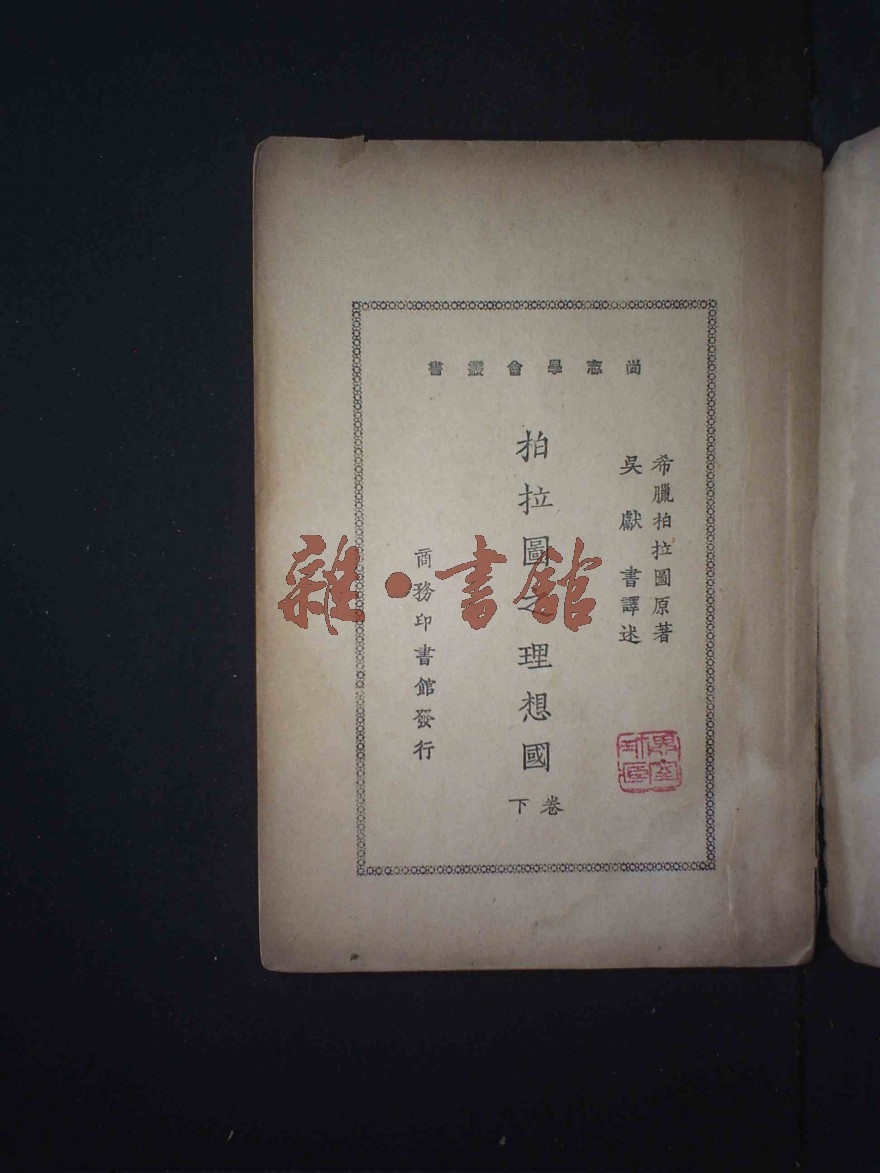 尚志學會叢書
希臘柏拉圖原著
吳獻書譯述
柏拉圖之理想國
卷下
商務印書館發行
雜·書館